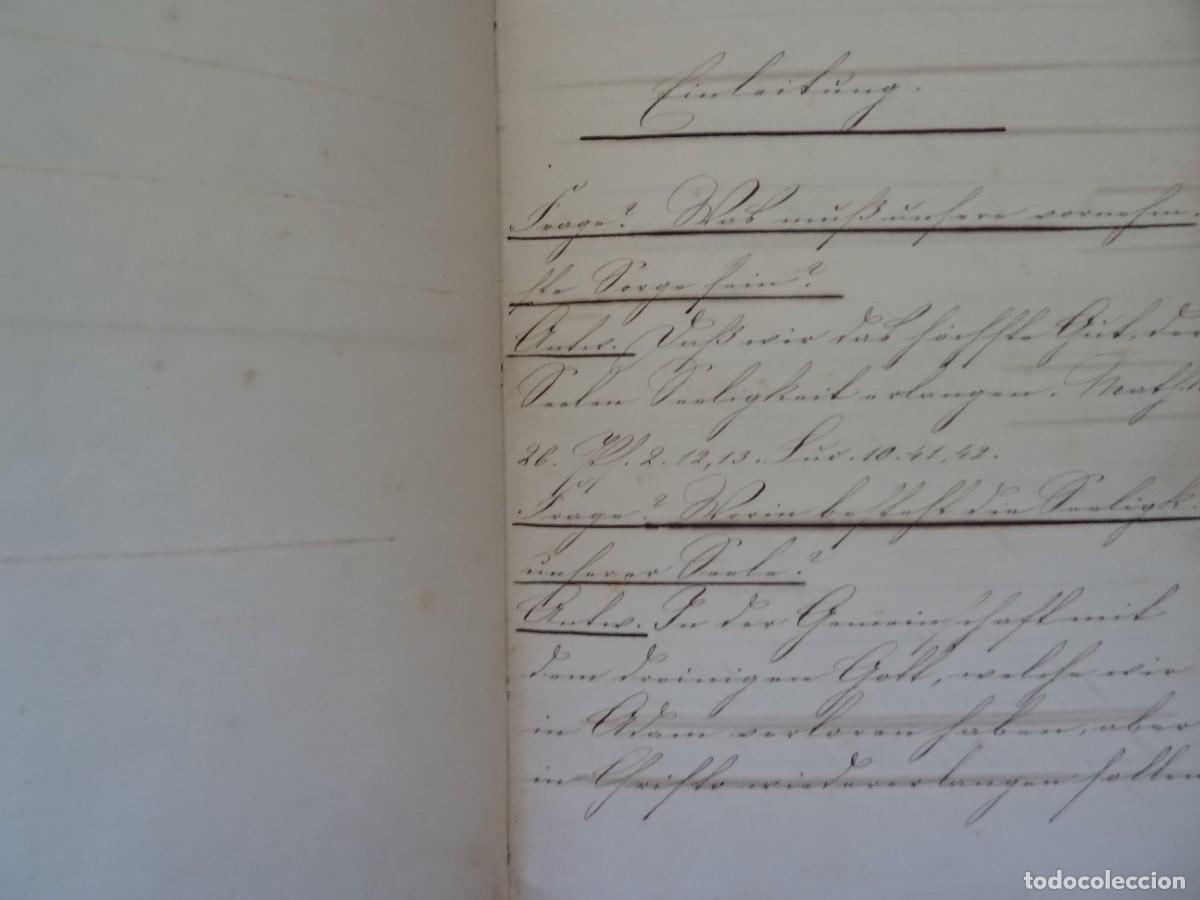 Einleitung.
Frage? Was muß unsere vornehm-
ste Sorge sein?
Antw. Daß wir das höchste Gut, der
Seelen Seeligkeit erlangen. Math.
26. Ps. 2. 12, 13. Luc. 10. 41, 42.
Frage? Worin besteht die Seeligk.
unserer Seele?
Antw. In der Gemeinschaft mit
dem dreinigen Gott, welche wir
in Adam verloren haben, aber
in Christo wiedererlangen sollen
todocoleccion